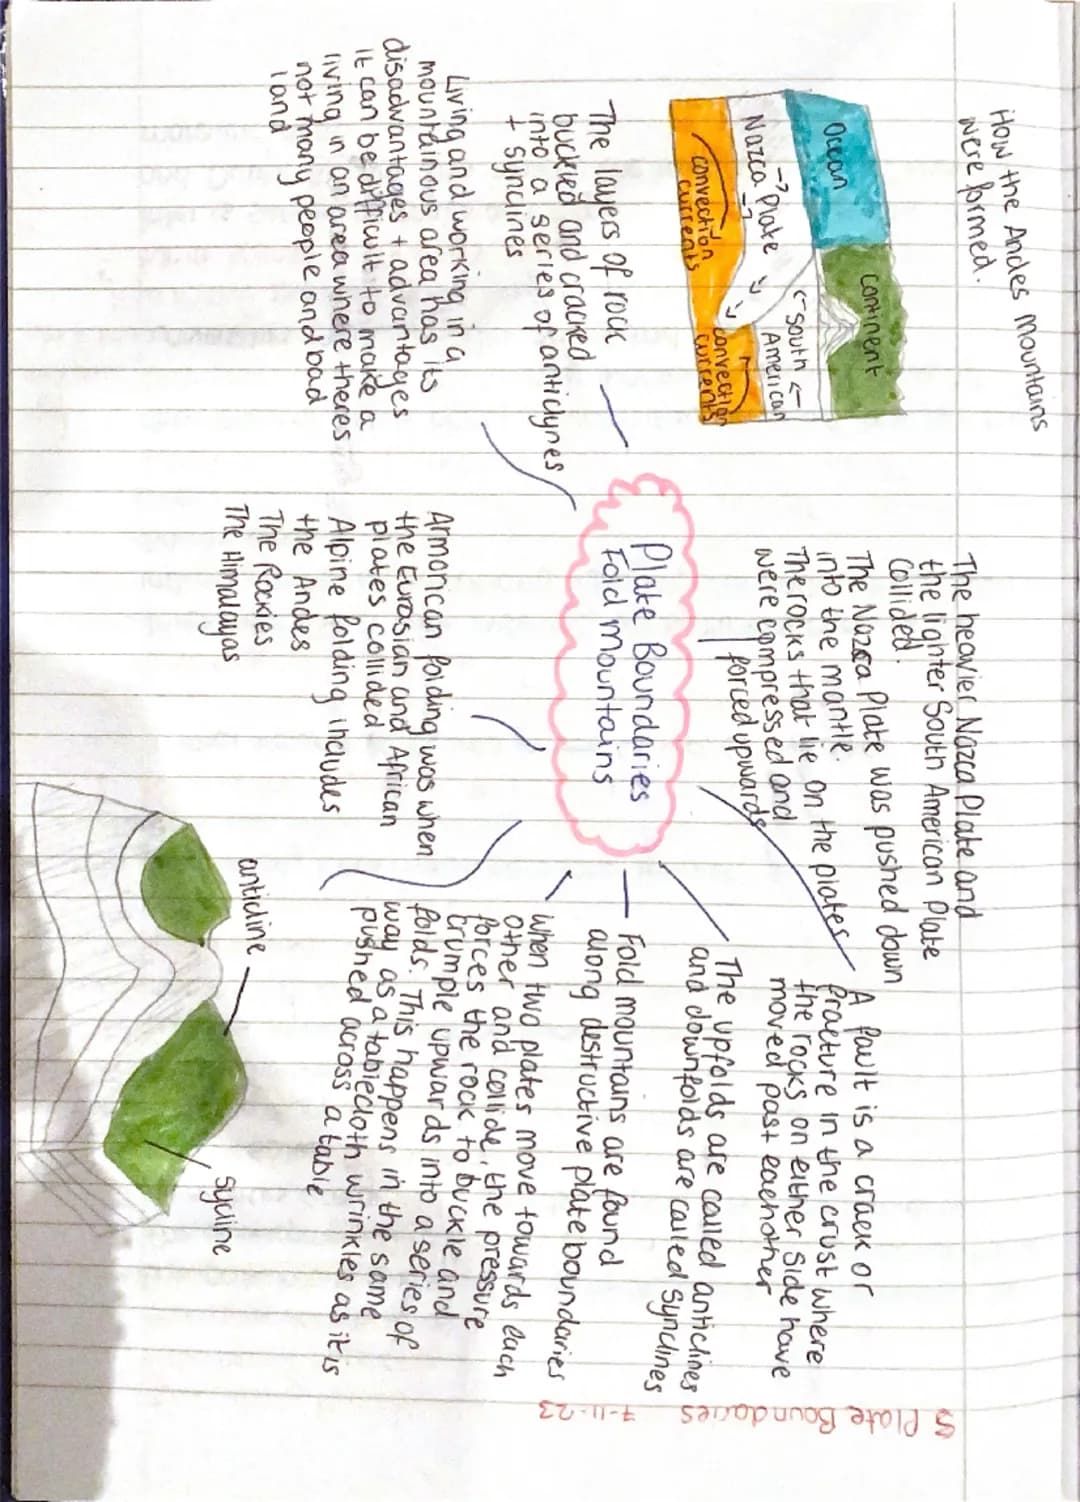 How the Andes mountains
were formed.
Ocean
continent
→
Nazca Plate
→
↘ ↘
← South ←
American
convection
currents
convection
currents
The layers of rock
buckled and cracked
into a series of anticlynes
+ synclines
Living and working in a
mountainous area has its
disadvantages + advantages
it can be difficult to make a
living in an area where theres
not many people and bad
land
Plate Boundaries
Fold Mountains
The heavier Nazca Plate and
the lighter South American Plate
collided.
The Nazca Plate was pushed down
into the mantle.
The rocks that lie on the plates
were compressed and
forced upwards
Armorican folding was when
the Eurasian and African
plates collided
Alpine folding includes
the Andes
The Rockies
The Himalayas
A fault is a crack or
fracture in the crust where
the rocks on either side have
moved past eachother
The upfolds are called anticlines
and downfolds are called synclines
Fold mountains are found
along destructive plate boundaries
when two plates move towards each
other and collide, the pressure
forces the rock to buckle and
crumple upwards into a series of
folds. This happens in the same
way as a tablecloth wrinkles as it is
pushed across a table
anticline
sycline
5 Plate Boundaries 7-11-23